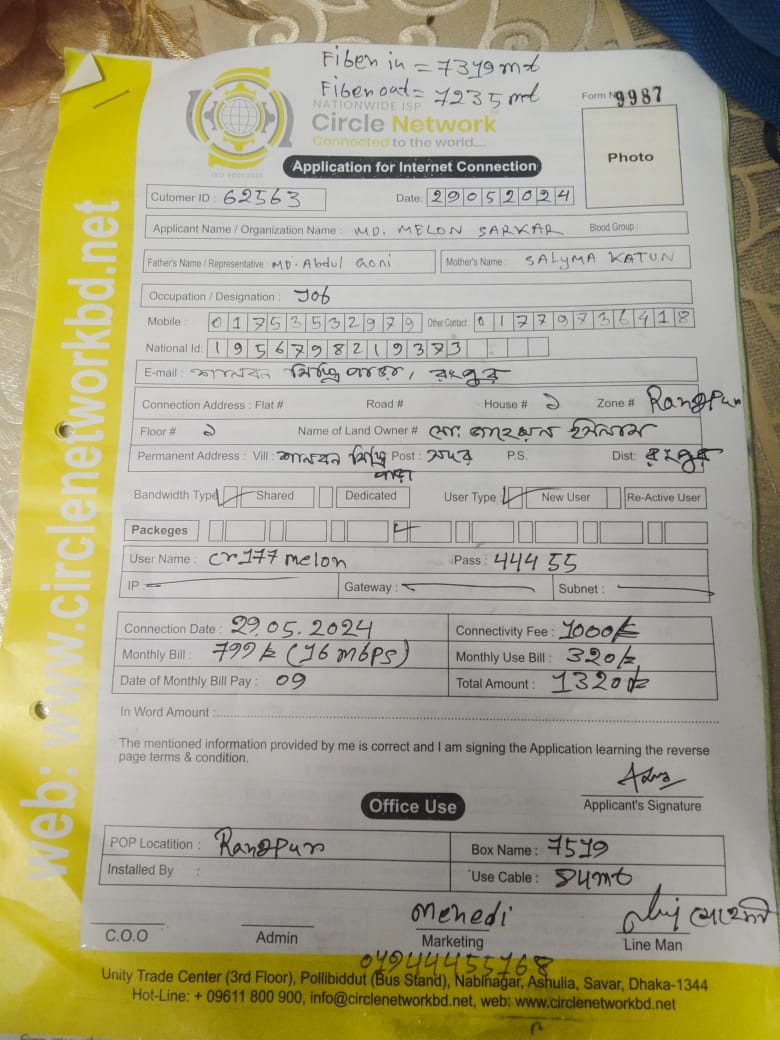 Fiber in = 7319mt
Fiber out = 7235 mt
NATIONWIDE ISP
Circle Network
Connected to the world....
ISO 9001:2015
Form N 9987
Photo
Application for Internet Connection
Cutomer ID : 62563 Date: 29052024
Applicant Name / Organization Name : MD. MELON SARKAR Blood Group :
Father's Name / Representative : MD. Abdul Goni Mother's Name : SALYMA KATUN
Occupation / Designation : Job
Mobile : 01753532979 Other Contact : 01779736418
National Id: 1956798219373
E-mail : শালবন মিস্ত্রি পাড়া, রংপুর
Connection Address : Flat # Road # House # ১ Zone # Rangpur
Floor # ১ Name of Land Owner # মো. ইসলাম
Permanent Address : Vill : শালবন মিস্ত্রি পাড়া Post : সদর P.S. Dist: রংপুর
Bandwidth Type Shared Dedicated User Type : New User Re-Active User
Packeges 4
User Name : cr177melon Pass : 44455
IP : Gateway : Subnet :
Connection Date : 29.05.2024 Connectivity Fee : 1000/=
Monthly Bill : 799 (16 mbps) Monthly Use Bill : 320/=
Date of Monthly Bill Pay : 09 Total Amount : 1320
In Word Amount :
The mentioned information provided by me is correct and I am signing the Application learning the reverse
page terms & condition.
Applicant's Signature
Office Use
POP Locatition : Rangpur Box Name : 7519
Installed By : Use Cable : 84mt
Menedi
C.O.O Admin Marketing Line Man
01944455768
Unity Trade Center (3rd Floor), Pollibiddut (Bus Stand), Nabinagar, Ashulia, Savar, Dhaka-1344
Hot-Line: + 09611 800 900, info@circlenetworkbd.net, web: www.circlenetworkbd.net
web: www.circlenetworkbd.net